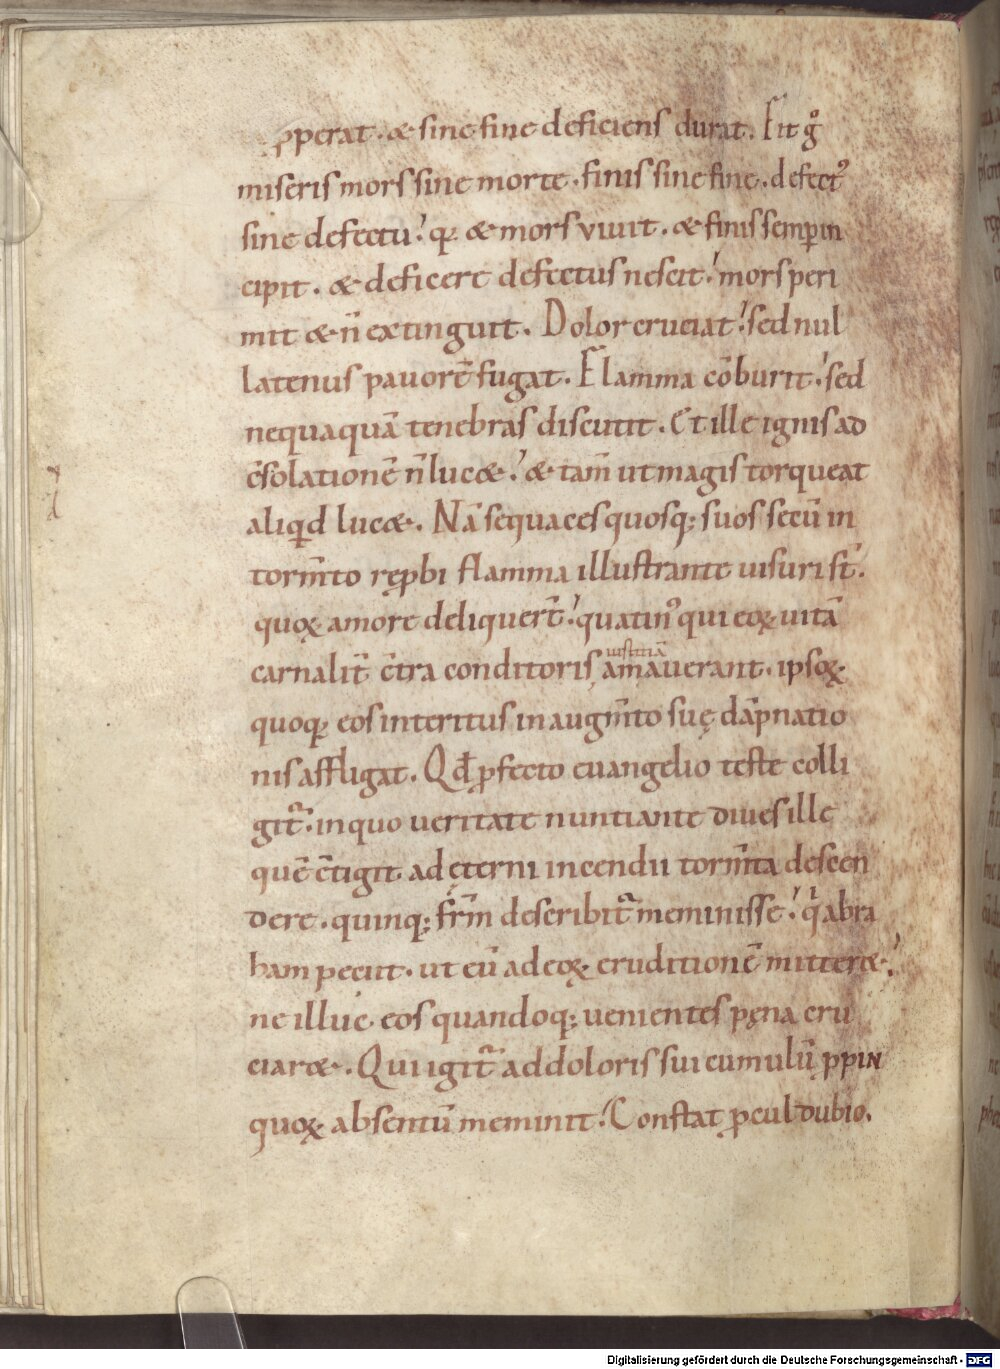 ꝓperat · & sine fine deficiens durat . Fit gͦ
miseris mors sine morte · finis sine fine · defectꝰ
sine defectu ! qꝛ & mors vivit . & finis semp in
cipit . & deficere defectus nescit ! mors peri
mit & n̄ extinguit . Dolor cruciat ! sed nul
latenus pavorē fugat . Flamma cōburit ! sed
nequaquā tenebras discutit . Et ille ignis ad
c̄solationē n̄ luc& ! & tam̄ ut magis torqueat
aliqd luc& . Nā sequaces quosq; suos secū in
torm̄to rępbi flamma illustrante visuri st̄ .
quoꝝ amore deliquer̄t ! quatinꝰ qui eoꝝ vitā
carnalit̄ c̄tra conditoris iustitiā amaverant . ipsoꝝ
quoq; eos interitus in augm̄to suę dāpnatio
nis affligat . Qđ ꝓfecto euangelio teste colli
git̄ . in quo veritate nuntiante dives ille
quē c̄tigit ad ęterni incendii torm̄ta descen
dere . quinq; fr̄m describit̄ meminisse ! qi abra
ham peciit . ut eū ad eoꝝ eruditionē mitter& !
ne illuc eos quandoq; venientes pęna cru
ciar& . Qui igit̄ ad doloris sui cumulū ꝓpin
quoꝝ absentū meminit ! Constat ꝓcul dubio .
Digitalisierung gefördert durch die Deutsche Forschungsgemeinschaft - DFG